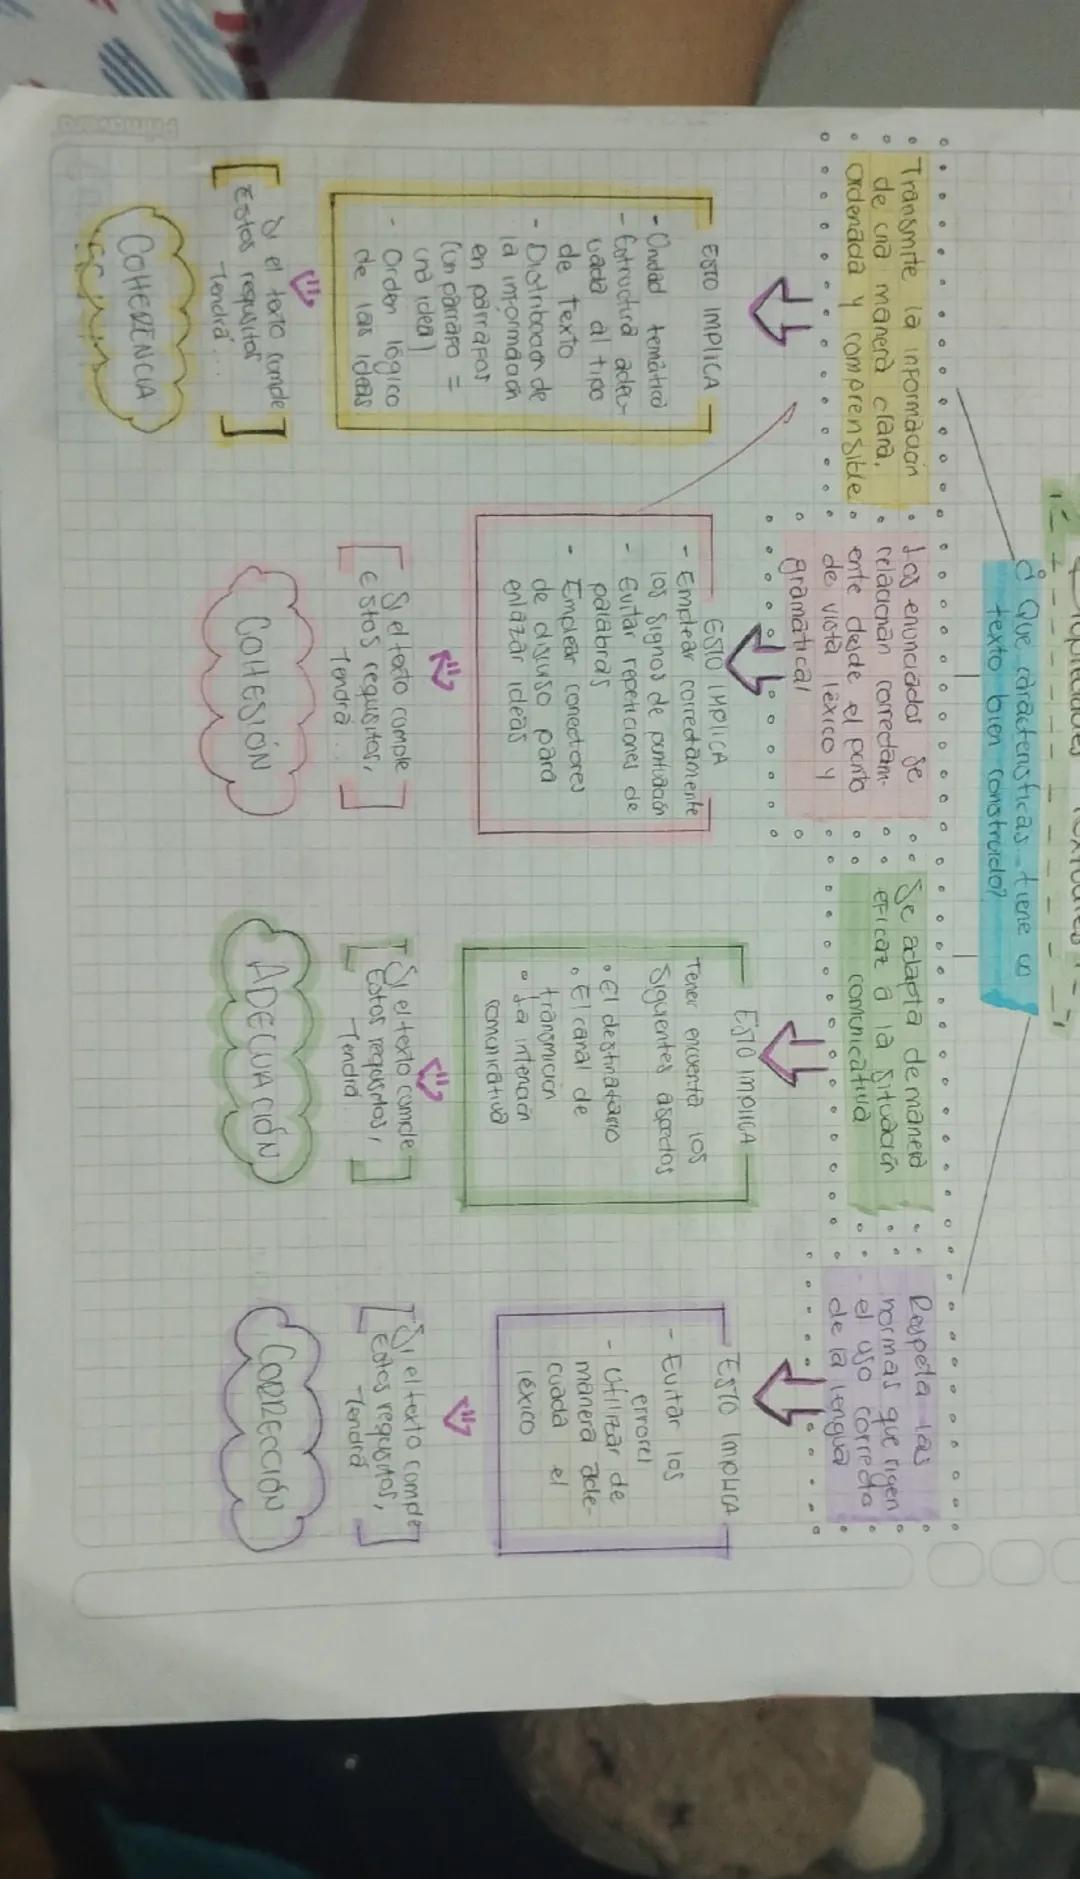 Propiedades Textuales
¿Que caracteristicas tiene un
texto bien construido?
Transmite la información
de una manera clara,
ordenada y comprensible
ESTO IMPLICA
- Unidad temática
- Estructura adecu-
uada al tipo
de Texto
- Distribución de
la información
en párrafos
(un párrafo =
una idea)
- Orden lógico
de las ideas
Si el texto cumple
Estos requisitos
Tendrá...
COHERENCIA
Los enunciados se
relacionan correctam-
ente desde el punto
de vista léxico y
gramatical
ESTO IMPLICA
- Emplear correctamente
los signos de puntuación
- Evitar repeticiones de
palabras
- Emplear conectores
de discurso para
enlazar ideas
Si el texto cumple
estos requisitos,
Tendrá...
COHESIÓN
Se adapta de manera
eficaz a la situación
comunicativa
ESTO IMPLICA
Tener encuenta los
Siguientes aspectos
• El destinatario
• El canal de
transmición
• La intención
comunicativa
Si el texto cumple
Estos requisitos,
Tendrá
ADECUACIÓN
Respeta las
normas que rigen
el uso correcto
de la lengua
ESTO IMPLICA
- Evitar los
errores
- Utilizar de
manera ade-
cuada el
léxico
Si el texto cumple
Estos requisitos,
Tendrá
CORRECCIÓN
Primavera